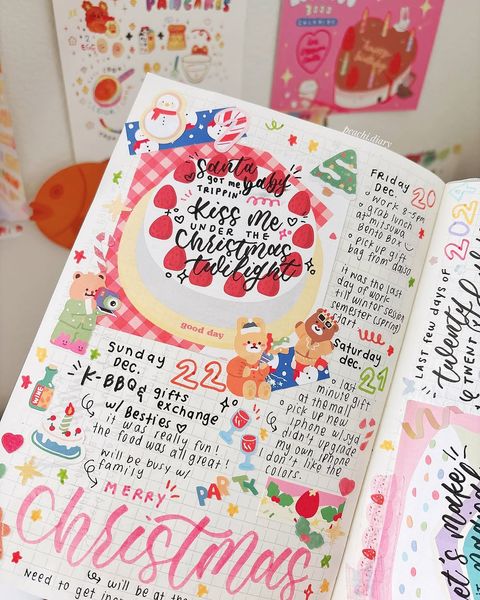 PANCAKES
EGG
peachi.diary
Santa baby
GOT ME
TRIPPIN'
Kiss Me
UNDER THE
Christmas
twilight
good day
FRIDAY
DEC. 20
work 8-5pm
grab lunch
at mitsuwa
BENTO BOX
pick up gift
bag from daiso
it was the last
day of work
till winter session
semester (spring)
start
SATURDAY
DEC. 21
last
minute gift
at the mall
pick up new
iphone w/ syd
didn't upgrade
my own iphone
I don't like the
colors.
SUNDAY
DEC. 22
K-BBQ & gifts
exchange
w/ Besties
it was really fun!
the food was all great!
will be busy w/
family
WINE
PARTY
MERRY
Christmas
will be at the
need to get
LAST FEW DAYS OF 2024
twenty
TWENT
let's make